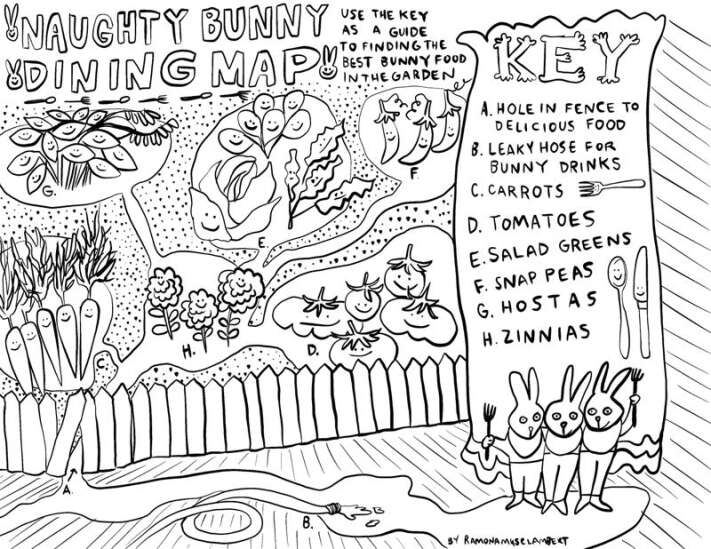 NAUGHTY BUNNY
DINING MAP
USE THE KEY
AS A GUIDE
TO FINDING THE
BEST BUNNY FOOD
IN THE GARDEN
KEY
A. HOLE IN FENCE TO
DELICIOUS FOOD
B. LEAKY HOSE FOR
BUNNY DRINKS
C. CARROTS
D. TOMATOES
E. SALAD GREENS
F. SNAP PEAS
G. HOSTAS
H. ZINNIAS
G.
E.
F
C.
H.
D.
A.
B.
BY RAMONAMUSELAMBERT